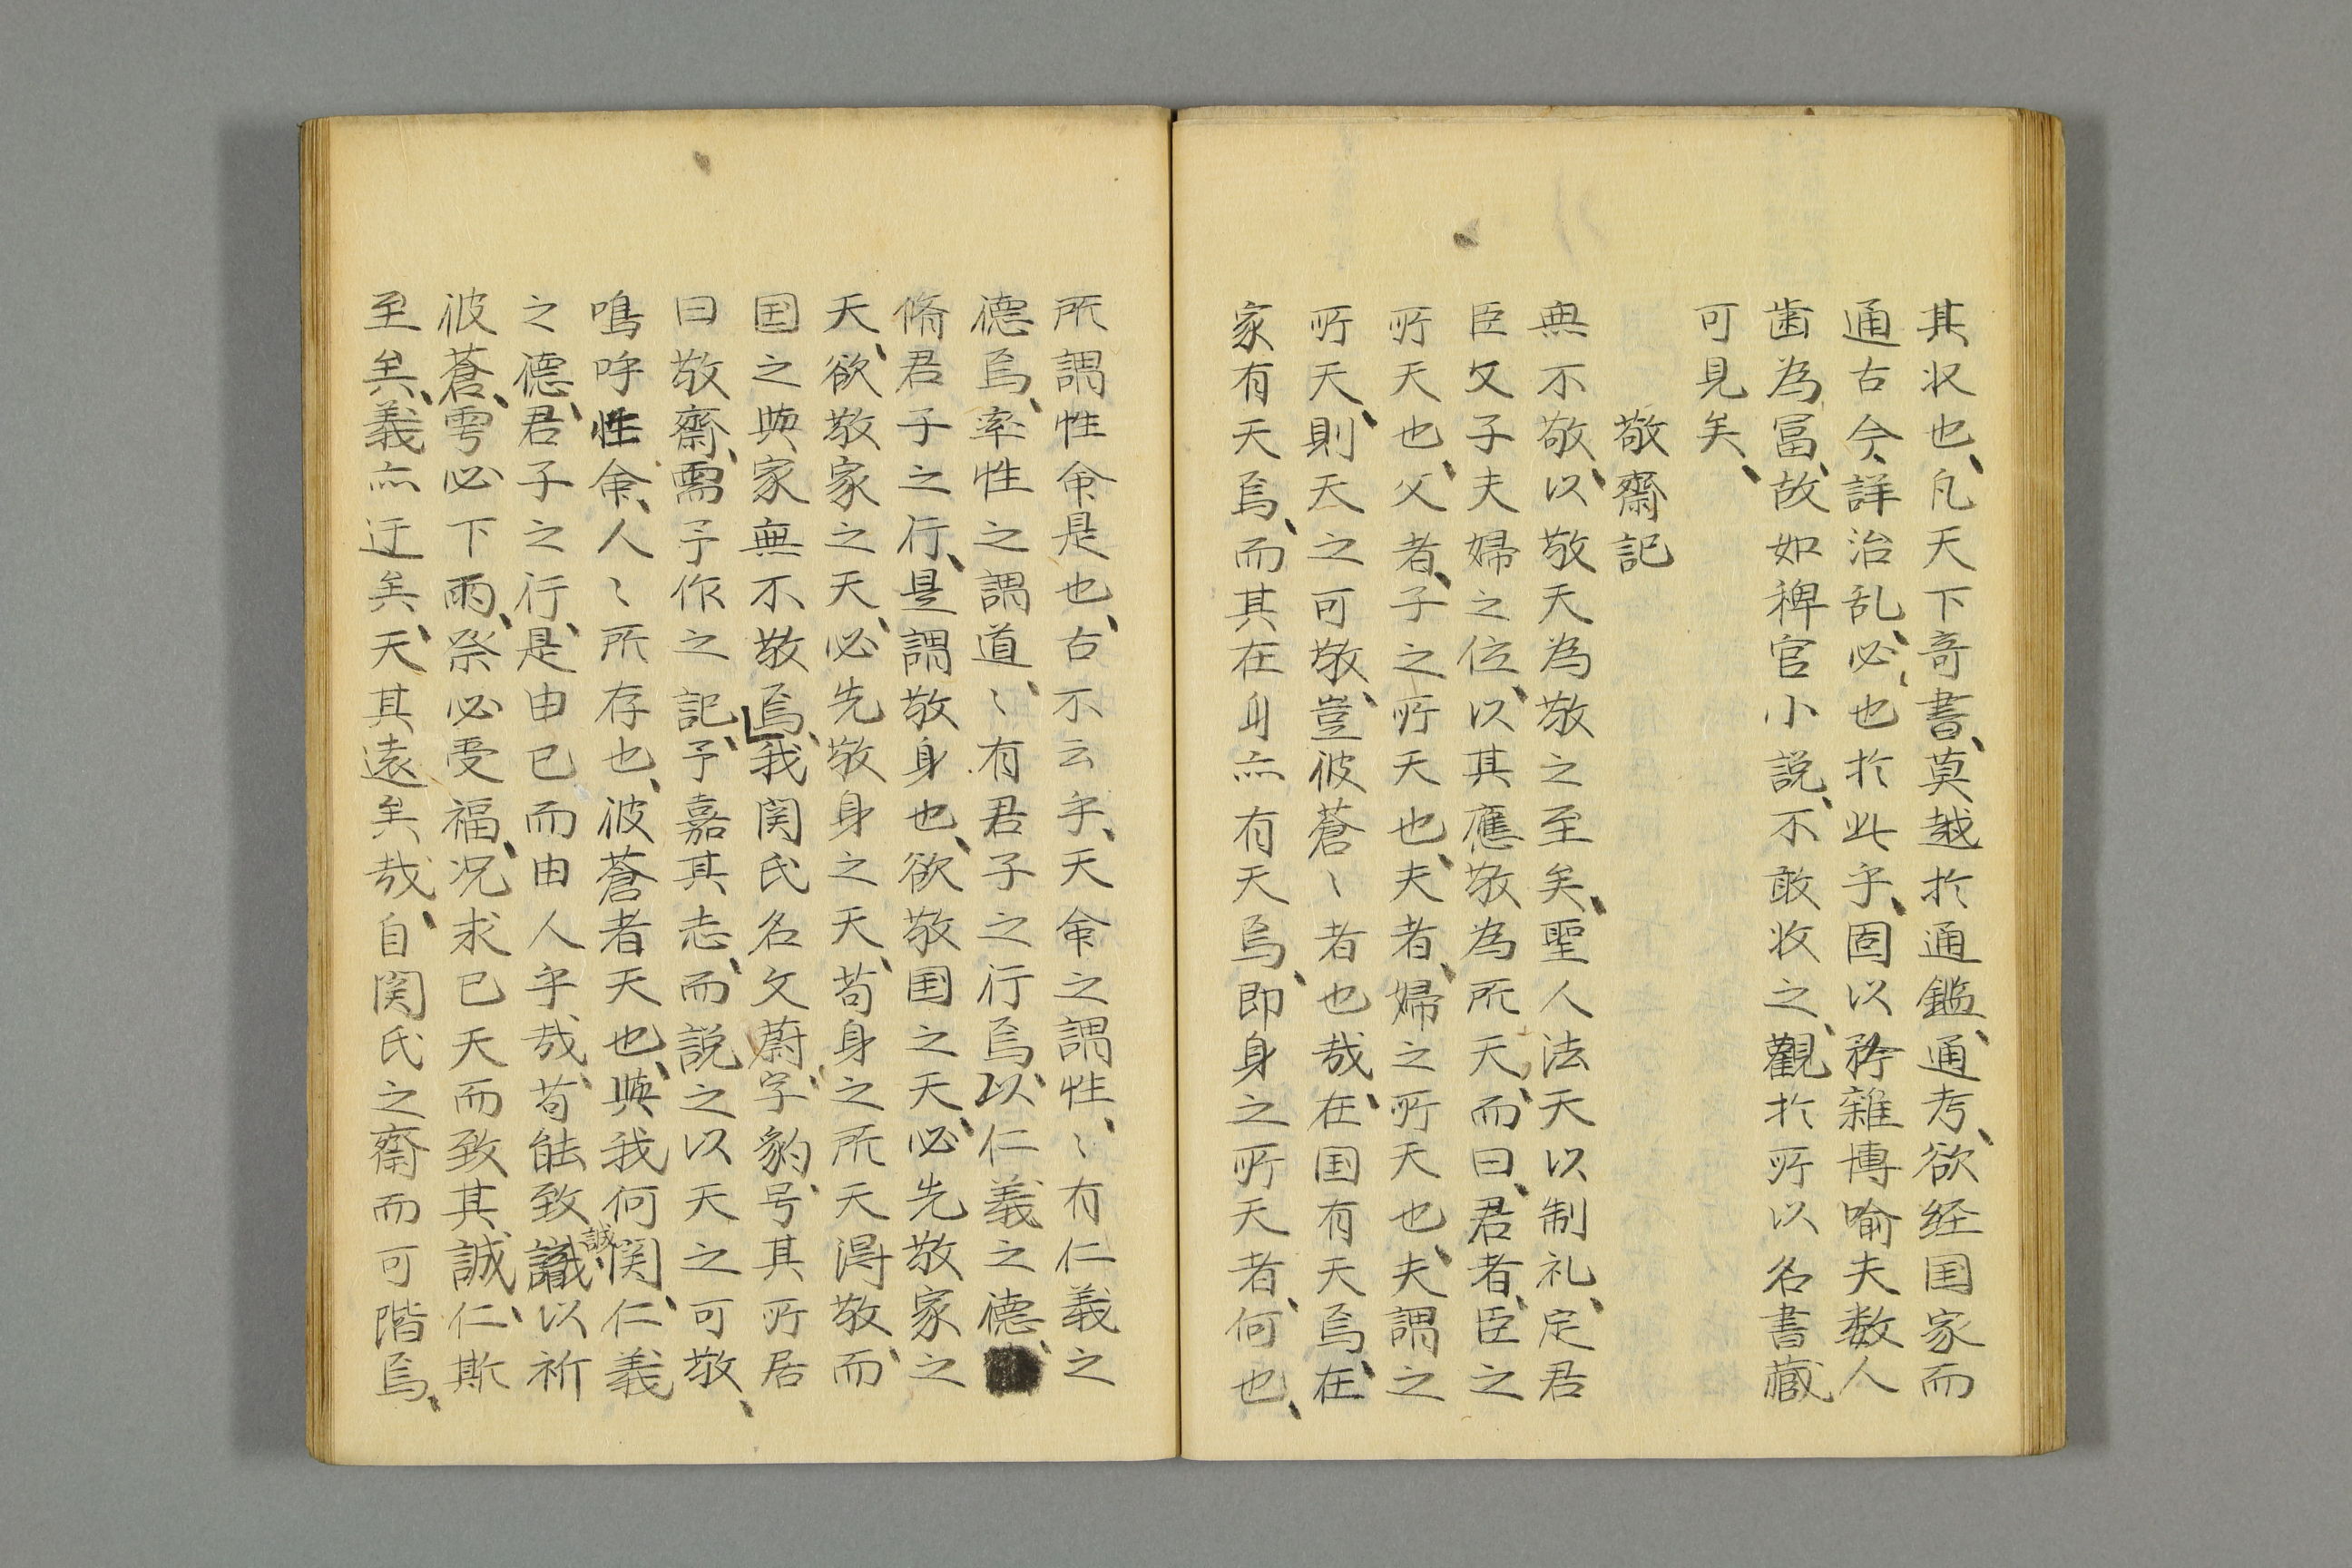 其状也、凡天下奇書、莫越於通鑑、通考、欲経国家而
通古今、詳治乱、必也於此乎、固以矜雑博喻夫数人
歯為冨、故如稗官小説、不敢收之、觀於所以名書蔵
可見矣、
敬齋記
無不敬、以敬天為敬之至矣、聖人法天以制礼、定君
臣父子夫婦之位、以其應敬為所天、而曰、君者、臣之
所天也、父者、子之所天也、夫者、婦之所天也、夫謂之
所天、則天之可敬、豈彼蒼〻者也哉、在国有天焉、在
家有天焉、而其在身亦有天焉、即身之所天者、何也、
所謂性命是也、古不云乎、天命之謂性、〻有仁義之
德焉、率性之謂道、〻有君子之行焉、以仁義之德、
脩君子之行、是謂敬身也、欲敬国之天、必先敬家之
天、欲敬家之天、必先敬身之天、苟身之所天得敬、而
国之與家無不敬焉、我関氏名文蔚、字豹、号其所居
曰敬齋、需予作之記、予嘉其志、而説之以天之可敬、
鳴呼性命、人〻所存也、彼蒼者天也、與我何関、仁義
之德、君子之行、是由已而由人乎哉、苟能致誠以祈
彼蒼、雩必下雨、祭必受福、况求已天而致其誠、仁斯
至矣、義亦迂矣、天其遠矣哉、自関氏之齋而可階焉、